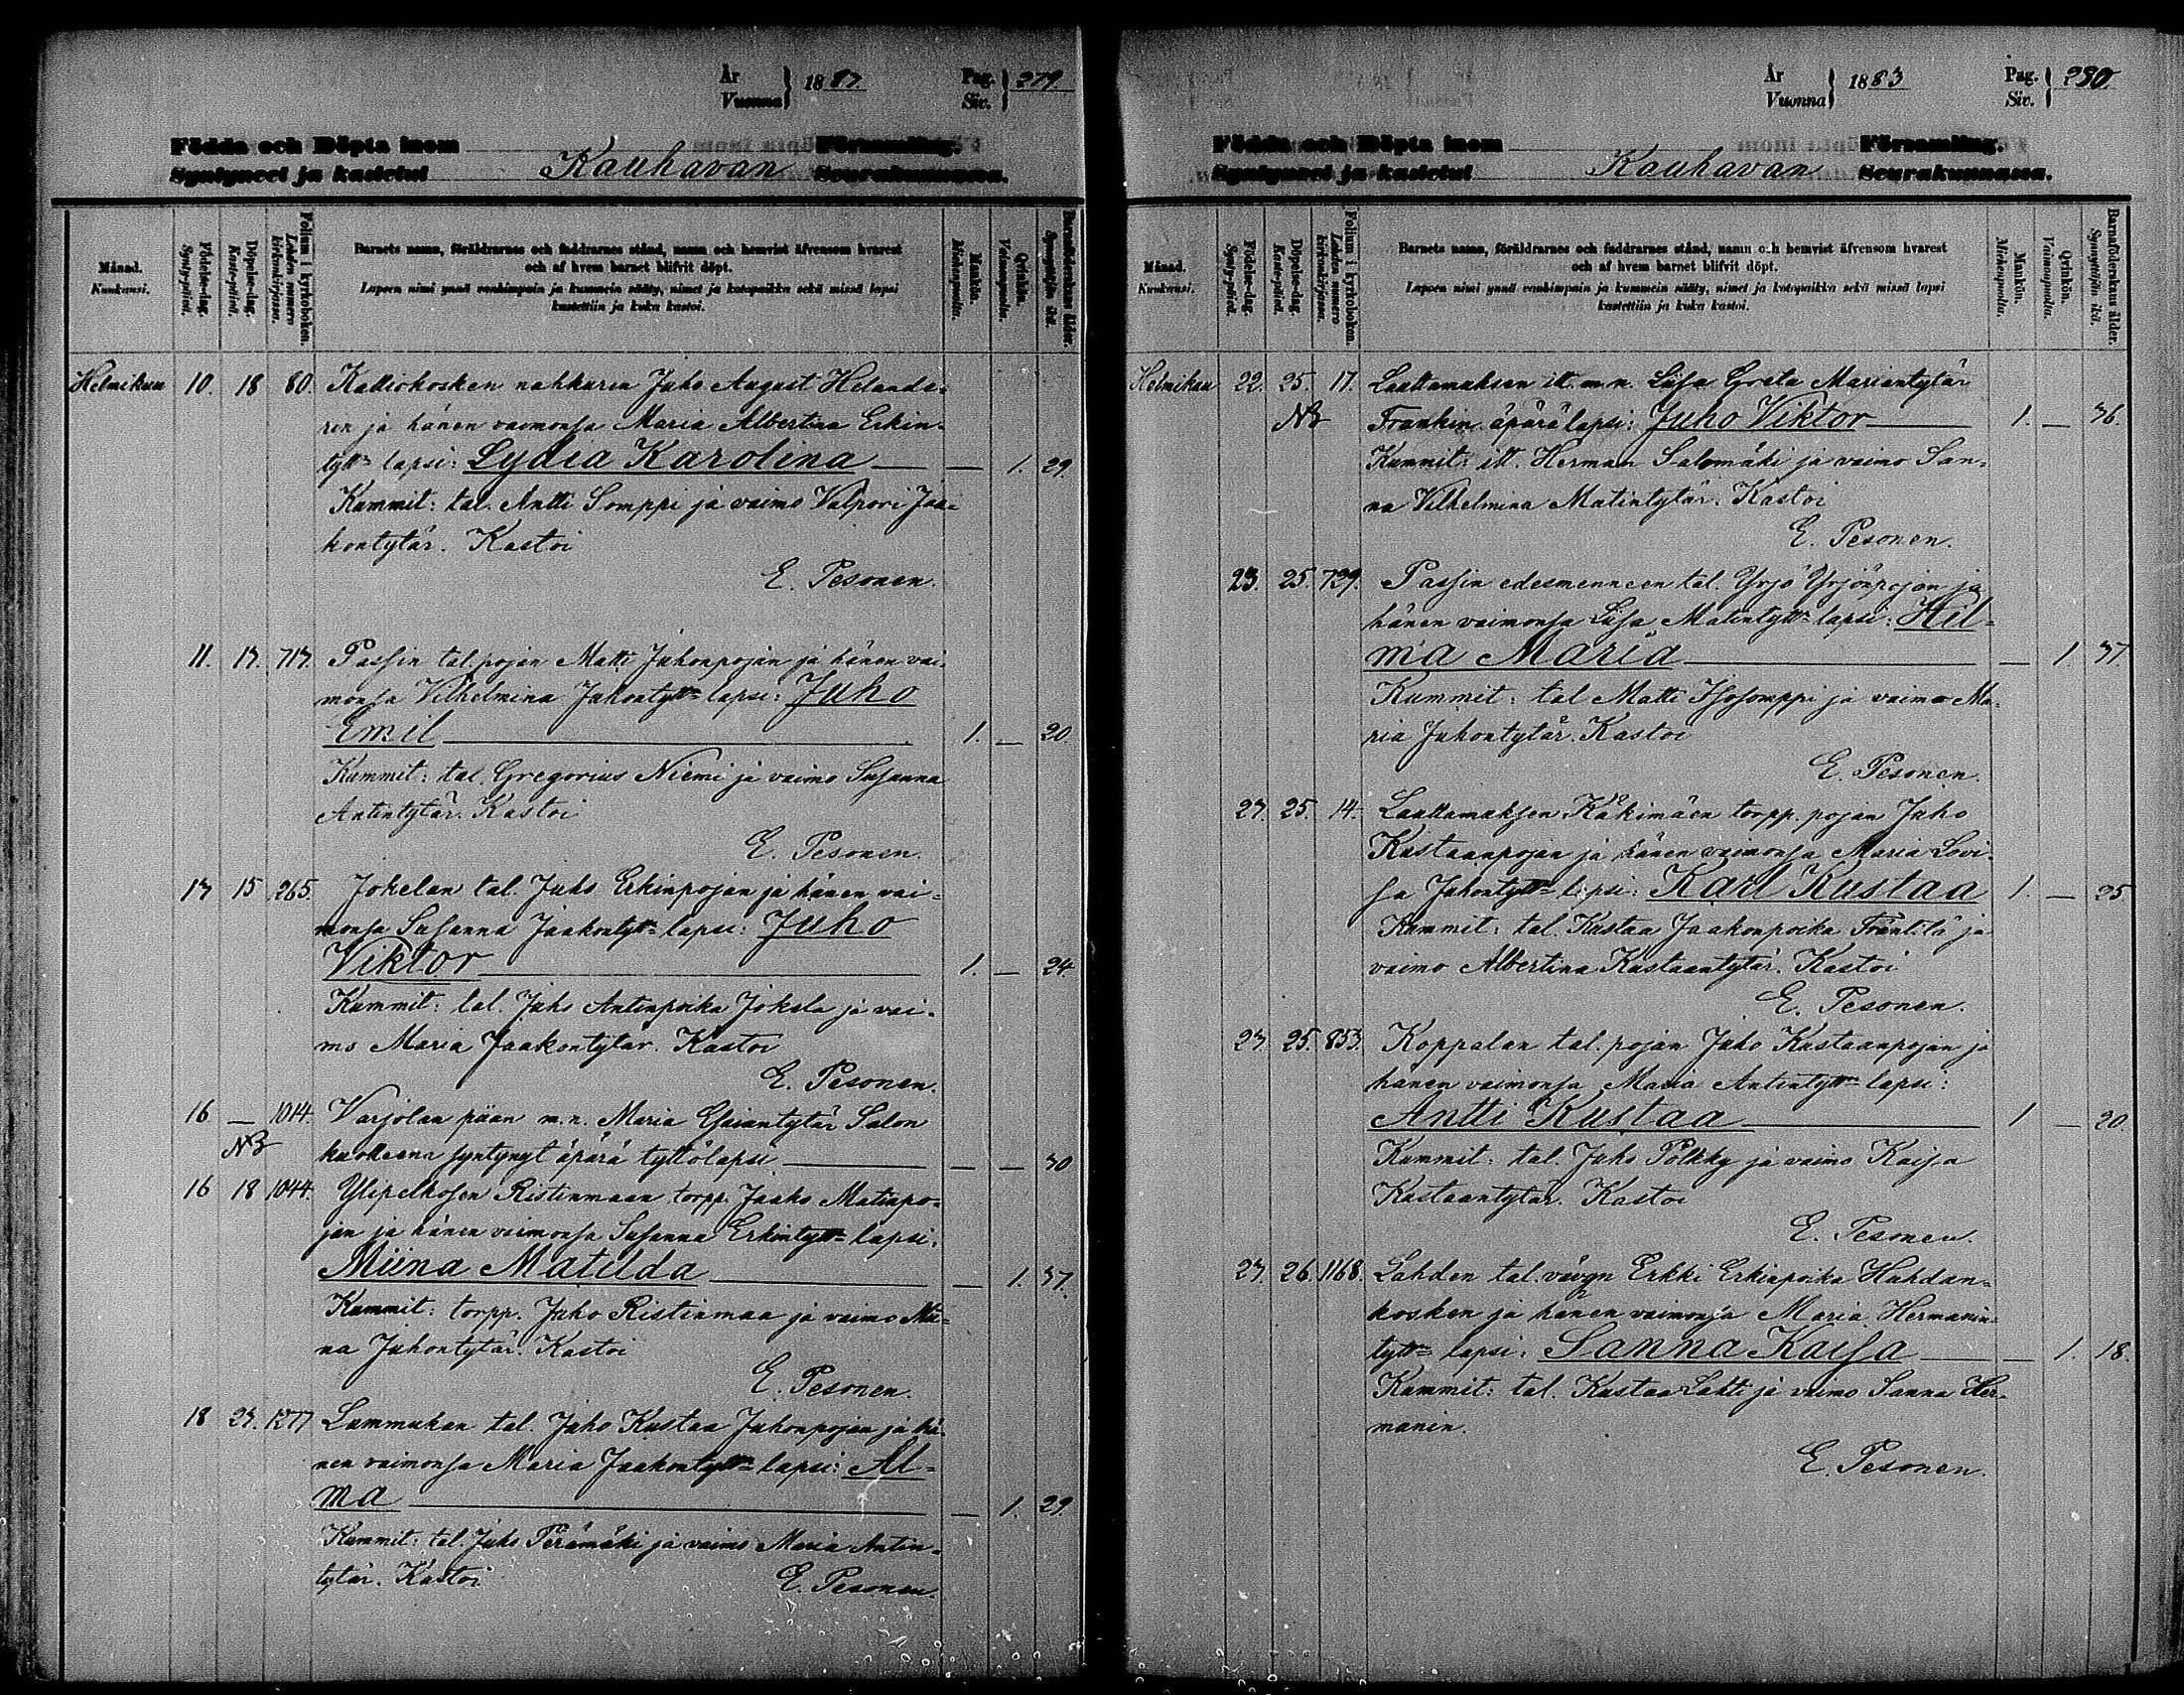 År
Vuonna } 1883. Pag.
Siv. } 279.
Födda och Döpta inom Församling.
Syntyneet ja kastetut Kauhavan Seurakunnassa.
Månad.
Kuukausi.
Födelse-dag.
Synty-päivä.
Döpelse-dag.
Kaste-päivä.
Folium i kyrkoboken.
Lehden numero kirkonkirjassa.
Barnets namn, föräldrarnes och faddrarnes stånd, namn och hemvist äfvensom hvarest
och af hvem barnet blifvit döpt.
Lapsen nimi ynnä vanhimpain ja kummein sääty, nimet ja kotopaikka sekä missä lapsi
kastettiin ja kuka kastoi.
Mankön.
Miehenpuolia.
Qvinkön.
Vaimonpuolia.
Barnaföderskans ålder.
Synnyttäjän ikä.
Helmikuu 10. 18 80. Kalliokosken nahkurin Juho August Helande-
rin ja hänen vaimonsa Maria Albertina Erkin-
tytt= lapsi: Lydia Karolina — — 1. 29.
Kummit: tal. Antti Somppi ja vaimo Valpori Jaa-
kontytär. Kastoi
E. Pesonen.
11. 13. 713. Passin tal. pojan Matti Juhonpojan ja hänen vai-
monsa Vilhelmina Juhontytt= lapsi: Juho
Emil — 1. — 20.
Kummit: tal. Gregorius Niemi ja vaimo Susanna
Antintytär. Kastoi
E. Pesonen.
13 15 265. Jokelan tal. Juho Erkinpojan ja hänen vai-
monsa Susanna Jaakontytt= lapsi: Juho
Viktor — 1. — 24
Kummit: tal. Juho Antinpoika Jokela ja vai-
mo Maria Jaakontytär. Kastoi
E. Pesonen.
16 — 1014. Varjolan pään m.n. Maria Esaiantytär Salon
NB kuolleena syntynyt äpärä tyttölapsi — — — 30
16 18 1044. Ylipelkosen Ristinmaan torpp. Jaako Matinpo-
jan ja hänen vaimonsa Susanna Erkintytt= lapsi:
Miina Matilda — — 1. 37.
Kummit: torpp. Juho Ristinmaa ja vaimo Mii-
na Juhontytär. Kastoi
E. Pesonen.
18 23. 1277 Lummukan tal. Juho Kustaa Juhonpojan ja hä-
nen vaimonsa Maria Jaakontytt= lapsi: Al-
ma — — 1. 29.
Kummit: tal. Juho Perämäki ja vaimo Maria Antin-
tytär. Kastoi E. Pesonen.
År
Vuonna } 1883 Pag.
Siv. } 280.
Födda och Döpta inom Församling.
Syntyneet ja kastetut Kauhavan Seurakunnassa.
Månad.
Kuukausi.
Födelse-dag.
Synty-päivä.
Döpelse-dag.
Kaste-päivä.
Folium i kyrkoboken.
Lehden numero kirkonkirjassa.
Barnets namn, föräldrarnes och faddrarnes stånd, namn och hemvist äfvensom hvarest
och af hvem barnet blifvit döpt.
Lapsen nimi ynnä vanhimpain ja kummein sääty, nimet ja kotopaikka sekä missä lapsi
kastettiin ja kuka kastoi.
Mankön.
Miehenpuolia.
Qvinkön.
Vaimonpuolia.
Barnaföderskans ålder.
Synnyttäjän ikä.
Helmikuu 22. 25. 17. Luuttamuksen itt. m.n. Liisa Greta Mariantytär
NB Frankin äpärä lapsi: Juho Viktor — 1. — 36.
Kummit: itt. Herman Salomäki ja vaimo San-
na Vilhelmina Matintytär. Kastoi
E. Pesonen.
23. 25. 729. Passin edesmenneen tal. Yrjö Yrjönpojan ja
hänen vaimonsa Liisa Matintytt= lapsi: Hil-
ma Maria — — 1. 37.
Kummit: tal Matti Isosomppi ja vaimo Ma-
ria Juhontytär. Kastoi
E. Pesonen.
23. 25. 14. Luuttamuksen Käkimäen torpp. pojan Juho
Kustaanpojan ja hänen vaimonsa Maria Lovi-
sa Juhontytt= lapsi: Karl Kustaa 1. — 25
Kummit: tal. Kustaa Jaakonpoika Fräntilä ja
vaimo Albertina Kustaantytär. Kastoi
E. Pesonen.
23. 25. 853. Koppalan tal. pojan Juho Kustaanpojan ja
hänen vaimonsa Maria Antintytt= lapsi:
Antti Kustaa — 1 — 20
Kummit: tal. Juho Pölkky ja vaimo Kaisa
Kustaantytär. Kastoi
E. Pesonen.
23. 26. 1168. Lahden tal. vävyn Erkki Erkinpoika Huhdan-
kosken ja hänen vaimonsa Maria Hermanin-
tytt= lapsi: Sanna Kaisa — — 1. 18.
Kummit: tal. Kustaa Lahti ja vaimo Sanna Her-
manin.
E. Pesonen.